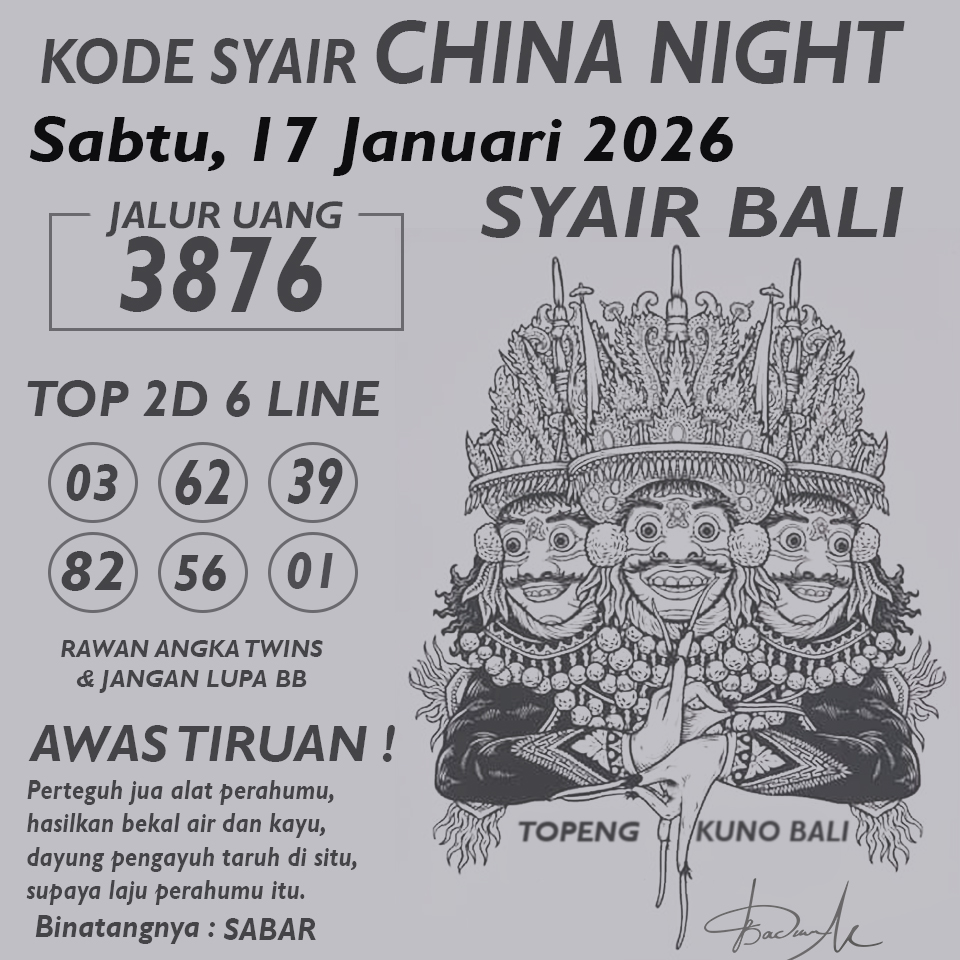 KODE SYAIR CHINA NIGHT
Sabtu, 17 Januari 2026
SYAIR BALI
JALUR UANG
3876
TOP 2D 6 LINE
03 62 39
82 56 01
RAWAN ANGKA TWINS
& JANGAN LUPA BB
AWAS TIRUAN !
Perteguh jua alat perahumu,
hasilkan bekal air dan kayu,
dayung pengayuh taruh di situ,
supaya laju perahumu itu.
Binatangnya : SABAR
TOPENG KUNO BALI